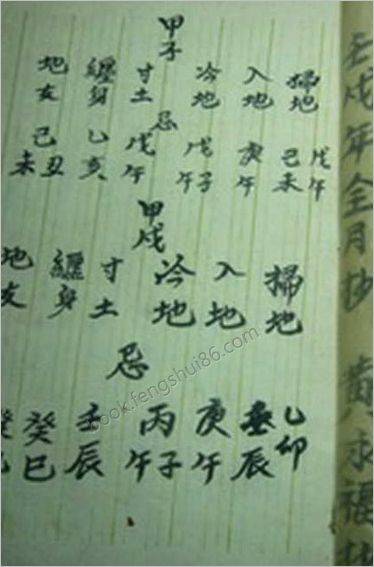 壬戌年全月抄 黄永福
甲子
掃地
入地
冷地
寸土
纏身
忌
戊午
己未
庚午
戊子午
戊午
乙亥
己丑未
甲戌
掃地
入地
冷地
寸土
纏身
地友
忌
乙卯
壬辰
庚午
丙子午
壬辰
癸巳
book.fengshui86.com